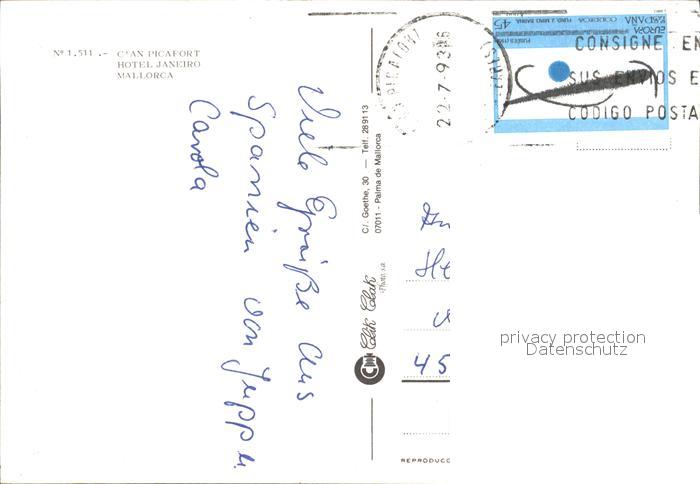 Nº 1.511 .- C'AN PICAFORT
HOTEL JANEIRO
MALLORCA
Viele Grüße aus
Spanien von Juppu.
Carola
C/. Goethe, 30 — Telf. 289113
07011 - Palma de Mallorca
Clik Clak
22-7-93
45
ESPAÑA
EUROPA
CONSIGNE EN
SUS ENVIOS E
CODIGO POSTA
An
He
45
REPRODUCC
privacy protection
Datenschutz